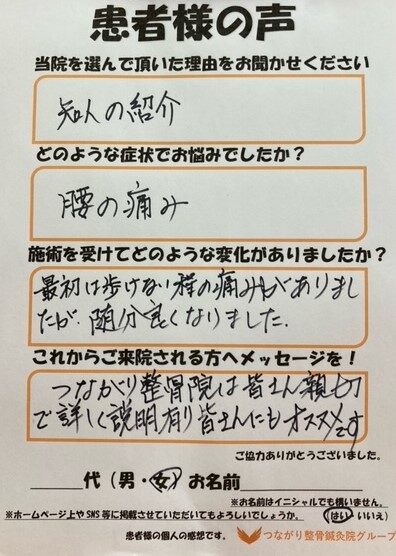 患者様の声
当院を選んで頂いた理由をお聞かせください
知人の紹介
どのような症状でお悩みでしたか？
腰の痛み
施術を受けてどのような変化がありましたか？
最初は歩けない程の痛みがありまし
たが、随分良くなりました.
これからご来院される方へメッセージを！
つながり整骨院は皆さん親切
で詳しく説明有り皆さんにもオススメです
ご協力ありがとうございました。
代（男・女）お名前
※お名前はイニシャルでも構いません。
※ホームページ上やSNS等に掲載させていただいてもよろしいでしょうか。（はい いいえ）
患者様の個人の感想です。 つながり整骨鍼灸院グループ